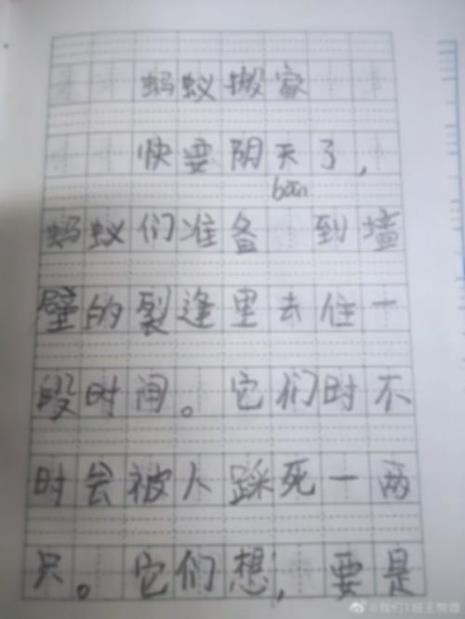 蚂蚁搬家
快要阴天了，
bān
蚂蚁们准备 到墙
壁的裂逢里去住一
段时间。它们时不
时会被人踩死一两
只。它们想，要是